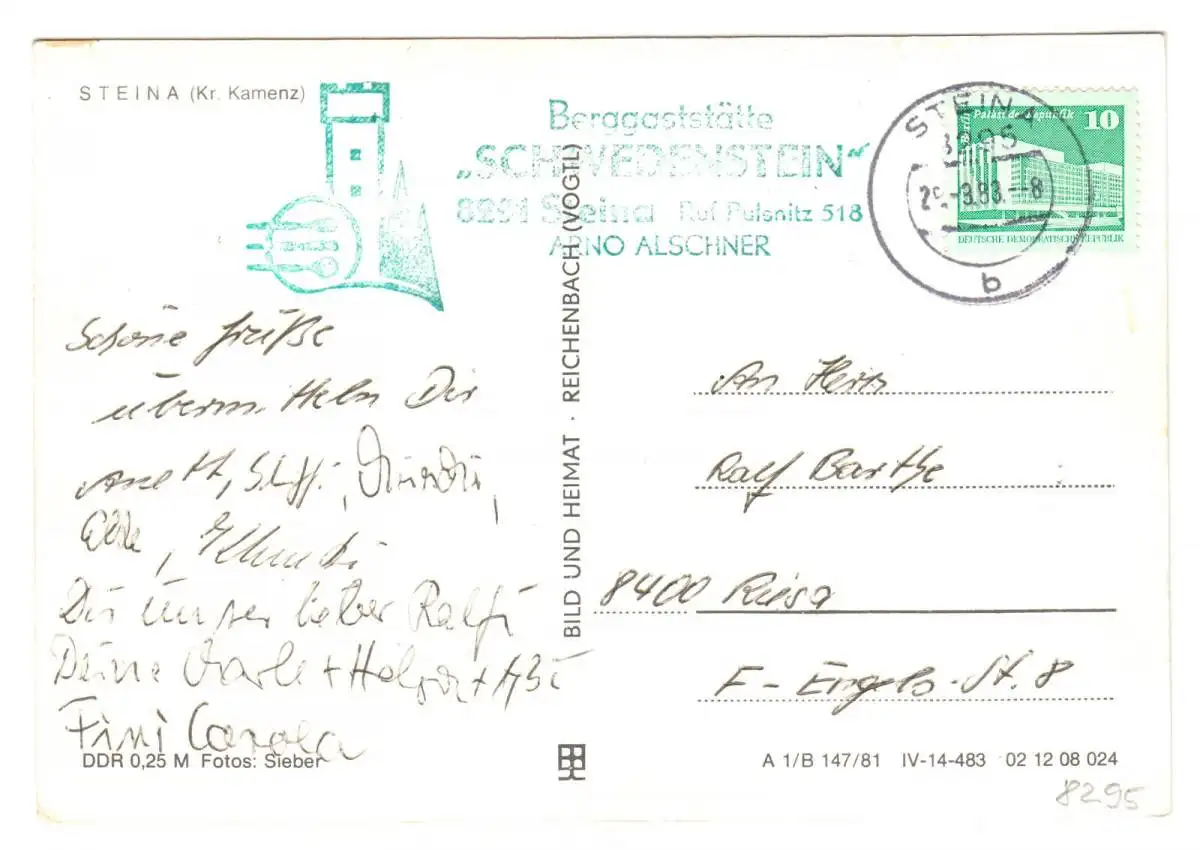 STEINA (Kr. Kamenz)
Berggaststätte
„SCHWEDENSTEIN“
8291 Steina Ruf Pulsnitz 518
ARNO ALSCHNER
STEINA
8295
29.-3.83.--8
b
Berlin Palast der Republik 10
DEUTSCHE DEMOKRATISCHE REPUBLIK
Schöne Grüße
übermitteln Dir
Anett, Steffi,
Dir unser lieber Ralfi
Deine
Fini Carola
BILD UND HEIMAT · REICHENBACH (VOGTL)
An Herrn
Ralf Barthe
8400 Riesa
F-Engels-St. 8
DDR 0,25 M Fotos: Sieber
A 1/B 147/81 IV-14-483 02 12 08 024
8295